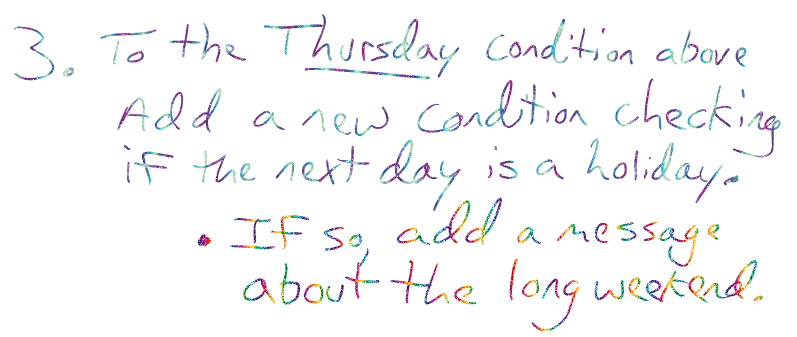 3. To the Thursday condition above
Add a new condition checking
if the next day is a holiday.
• If so, add a message
about the long weekend.